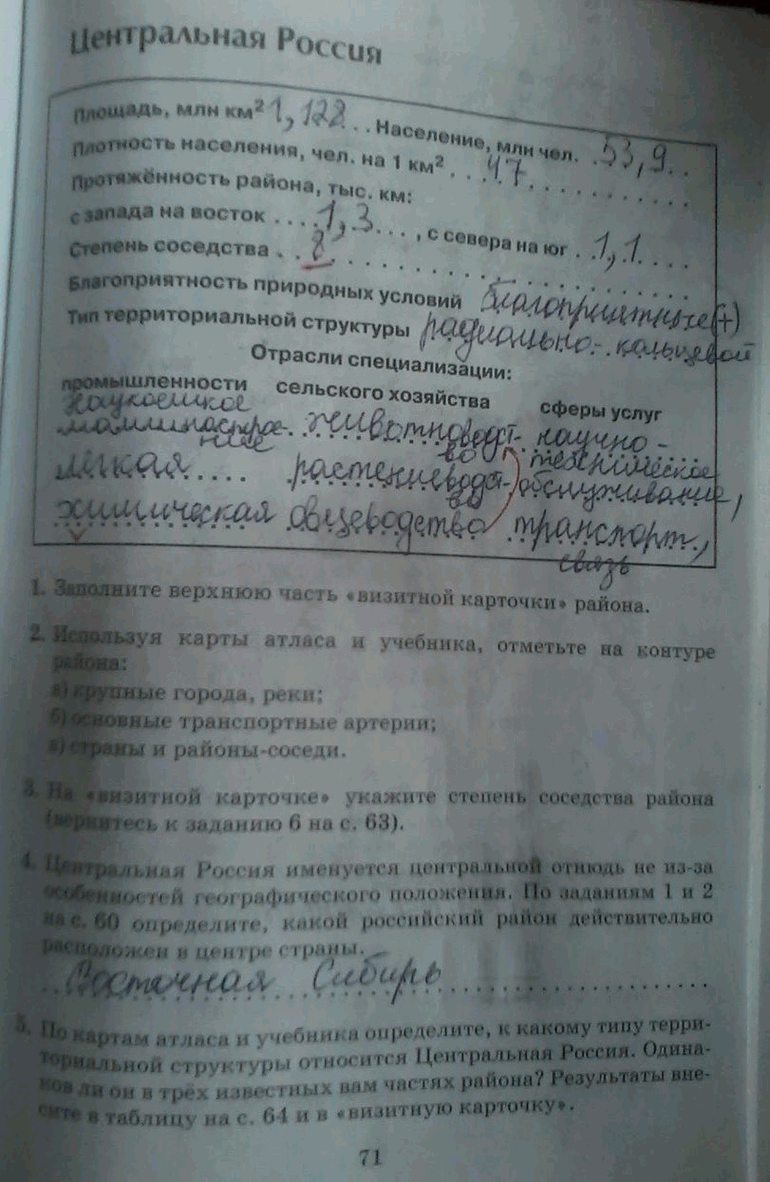 Центральная Россия
Площадь, млн км² 1,128... Население, млн чел. ..53,9..
Плотность населения, чел. на 1 км² ....47............
Протяжённость района, тыс. км:
с запада на восток ....1,3...., с севера на юг ..1,1....
Степень соседства ...8..................
Благоприятность природных условий благоприятные(+)
Тип территориальной структуры радиально-кольцевой
Отрасли специализации:
промышленности сельского хозяйства сферы услуг
наукоёмкое
машиностроение животноводство научно-техническое
лёгкая .... растениеводство обслуживание,
химическая овцеводство транспорт,
связь
1. Заполните верхнюю часть «визитной карточки» района.
2. Используя карты атласа и учебника, отметьте на контуре
района:
а) крупные города, реки;
б) основные транспортные артерии;
в) страны и районы-соседи.
3. На «визитной карточке» укажите степень соседства района
(вернитесь к заданию 6 на с. 63).
4. Центральная Россия именуется центральной отнюдь не из-за
особенностей географического положения. По заданиям 1 и 2
на с. 60 определите, какой российский район действительно
расположен в центре страны.
Восточная Сибирь
5. По картам атласа и учебника определите, к какому типу терри-
ториальной структуры относится Центральная Россия. Одина-
ков ли он в трёх известных вам частях района? Результаты вне-
сите в таблицу на с. 64 и в «визитную карточку».
71